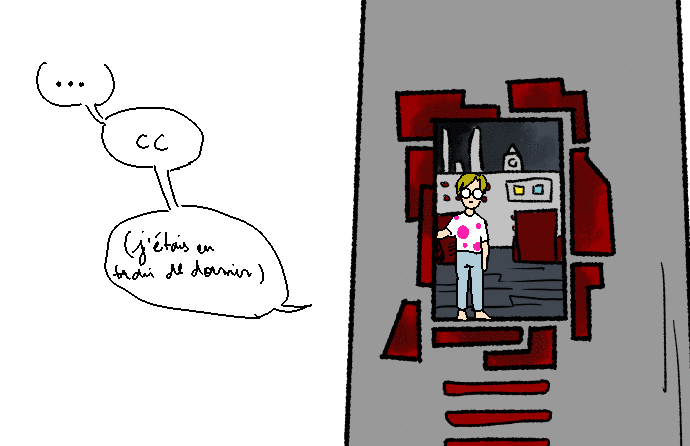 ...
cc
(j'étais en
train de dormir)